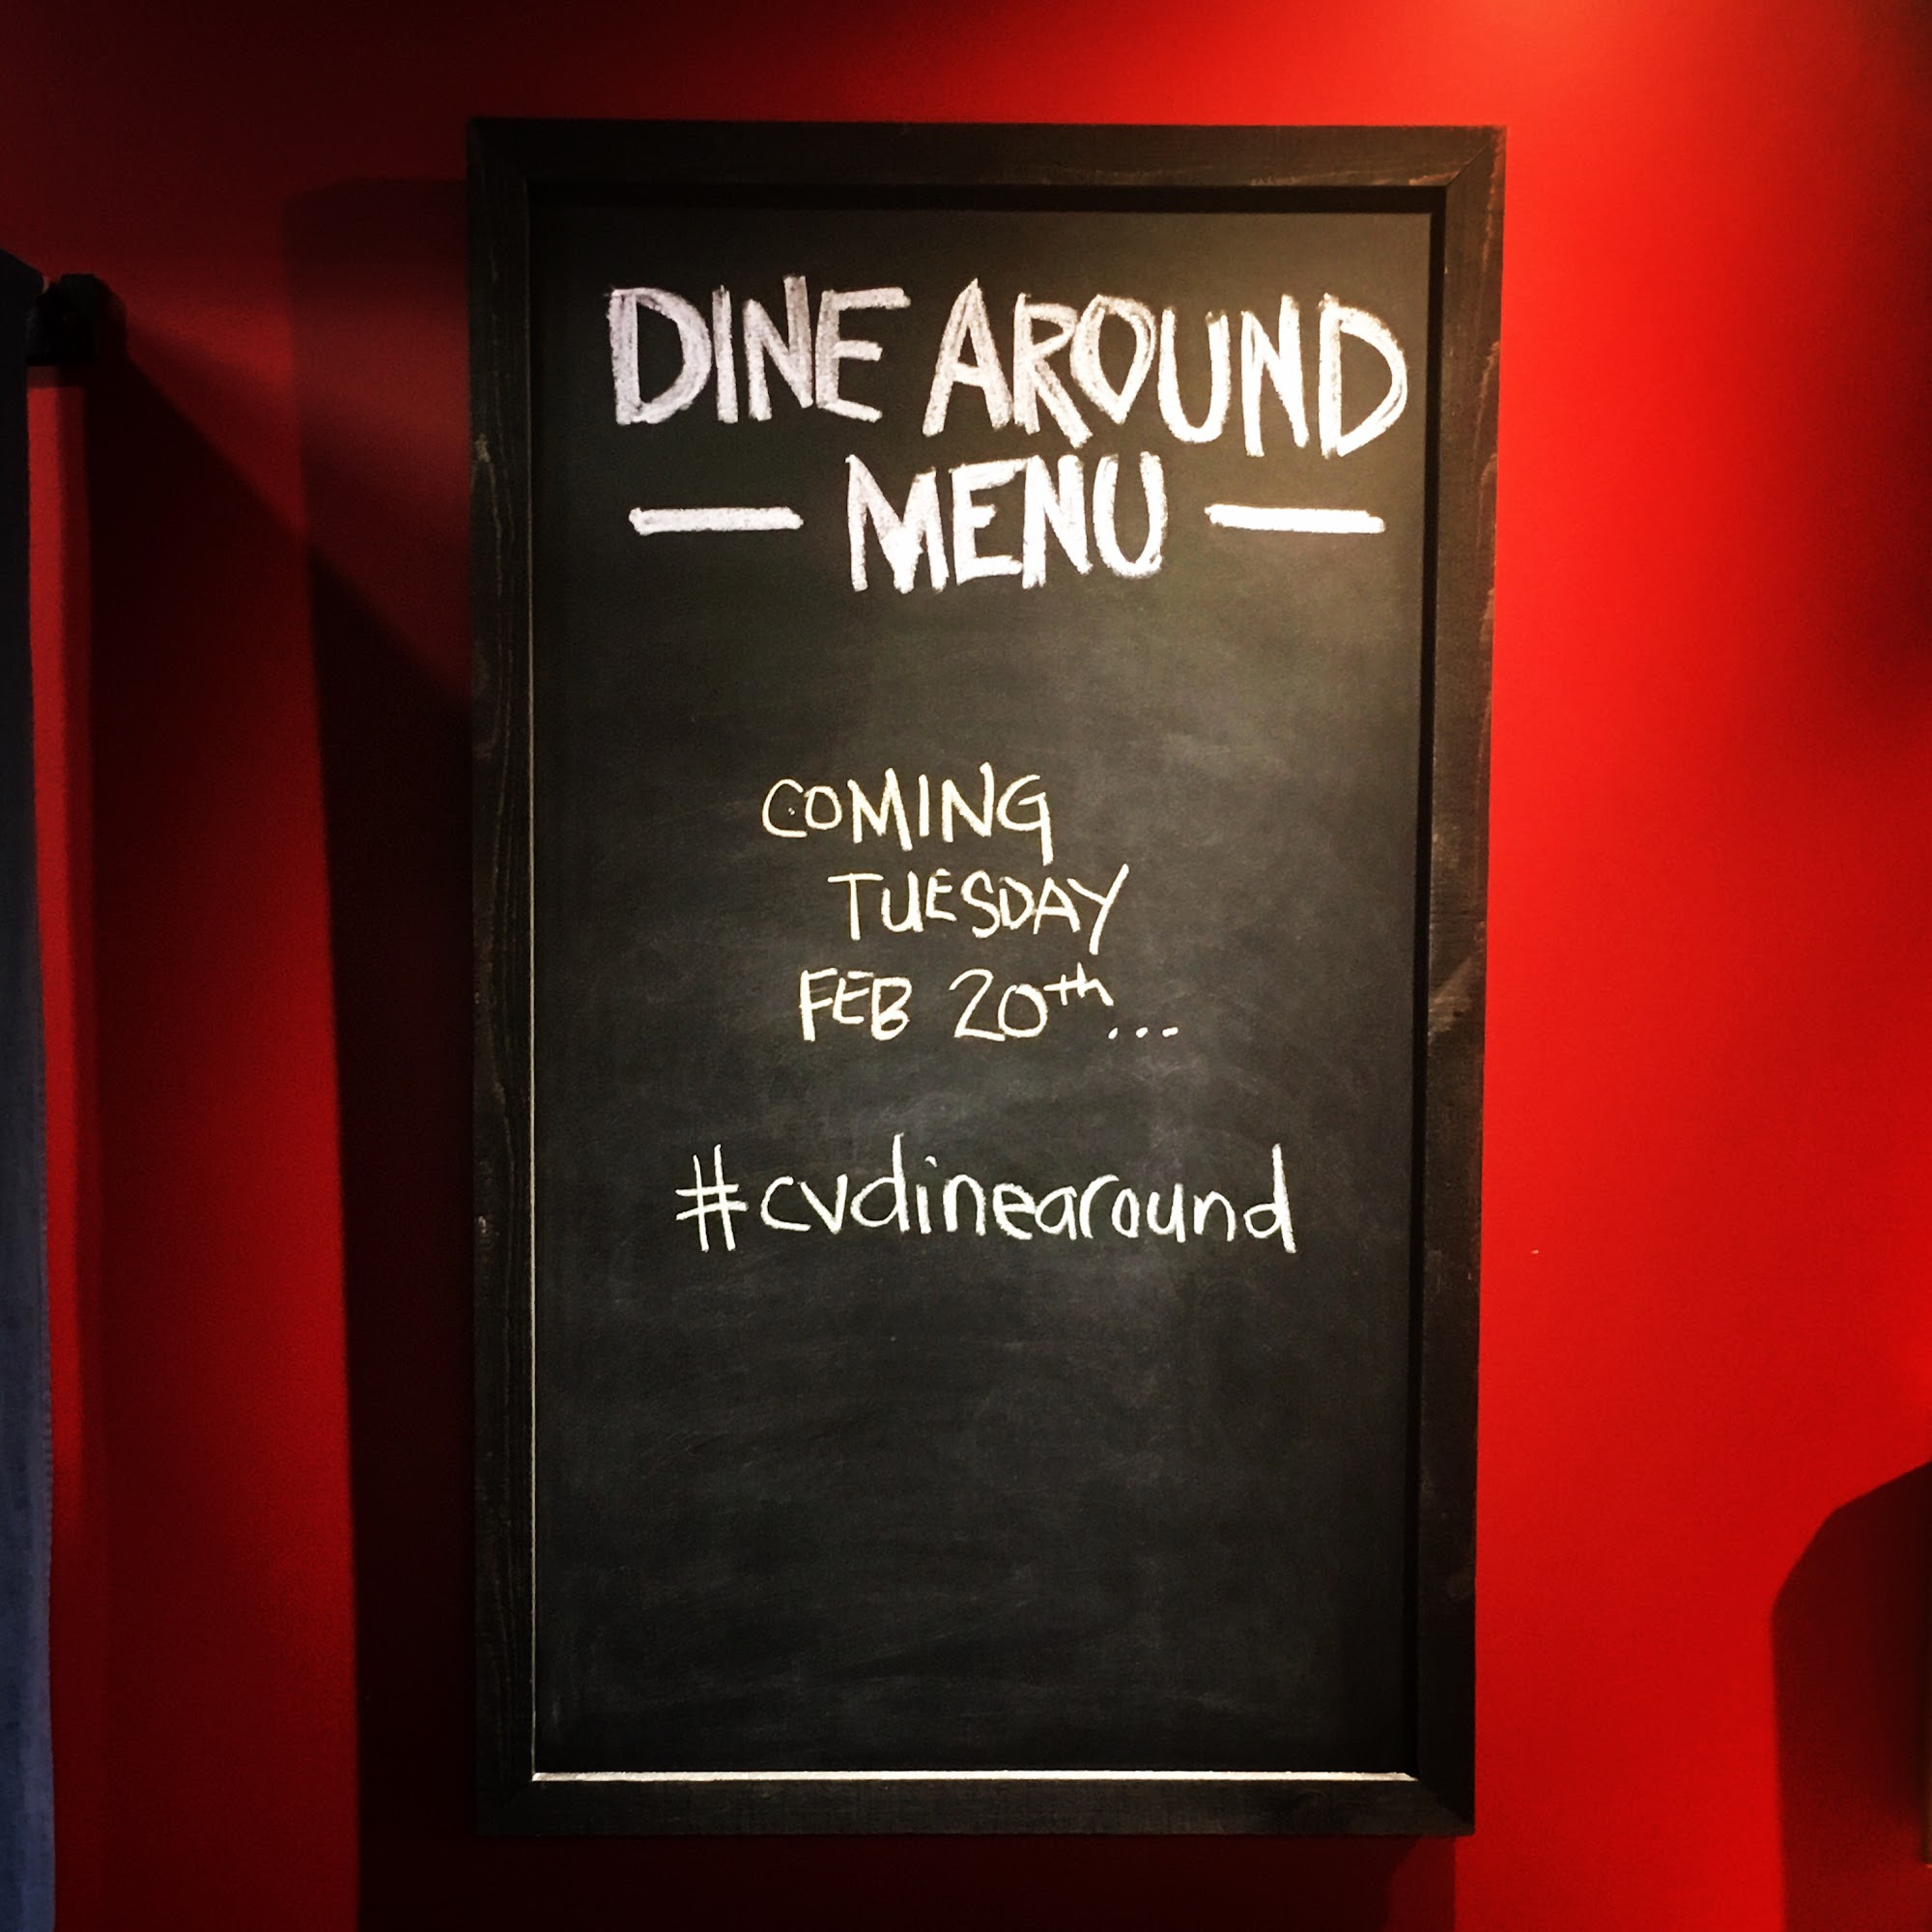 DINE AROUND
— MENU —
COMING
TUESDAY
FEB 20th...
#cvdinearound